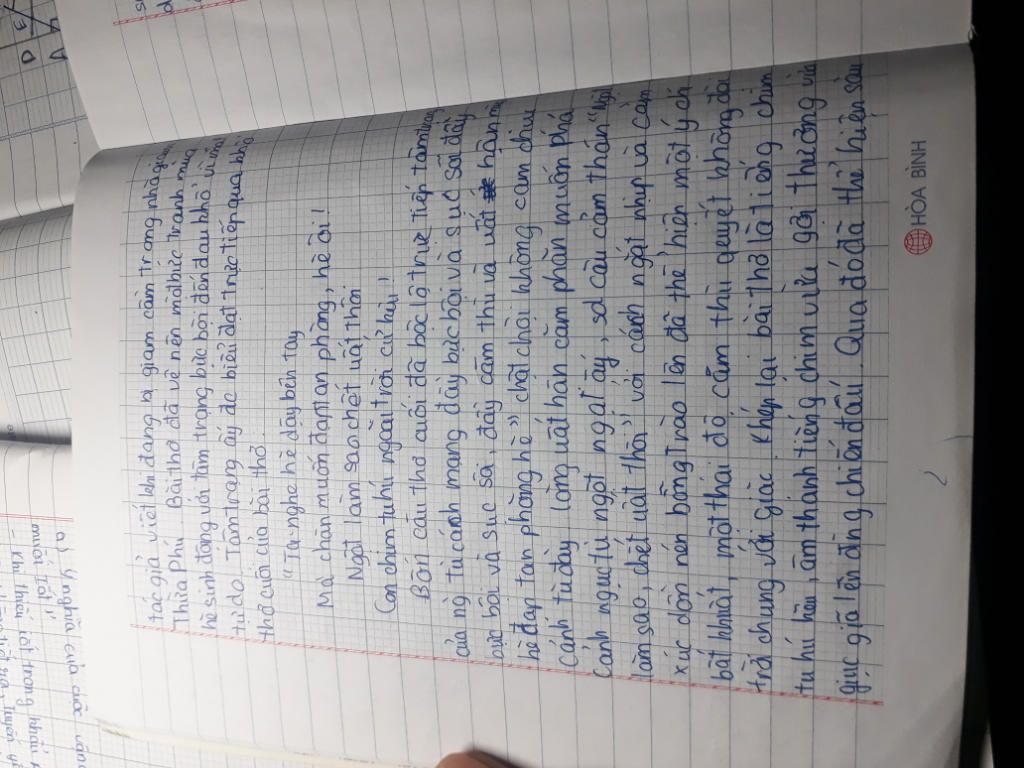 tác giả viết khi đang bị giam cầm trong nhà giam
Thừa Phủ. Bài thơ đã vẽ nên một bức tranh mùa
hè sinh động với tâm trạng bức bối đến đau khổ vì mất
tự do. Tâm trạng ấy đc biểu đạt trực tiếp qua bốn
thơ cuối của bài thơ.
"Ta nghe hè dậy bên tay
Mà chân muốn đạp tan phòng, hè ôi!
Ngột làm sao chết uất thôi
Con chim tu hú ngoài trời cứ kêu!
Bốn câu thơ cuối đã bộc lộ trực tiếp tâm trạng
của ng tù cánh mạng đầy bức bối và sục sôi đầy
bức bối và sục sôi, đầy căm thù và uất hận
hè đạp tan phòng hè" chật chội không cam chịu
cánh tù đầy lòng uất hận căm phẫn muốn phá
cảnh ngục tù ngột ngạt ấy, sd câu cảm thán "ngột
làm sao, chết uất thôi" với cách ngắt nhịp và cảm
xúc dồn nén bỗng trào lên đã thể hiện một ý chí
bất khất, một thái độ căm thù quyết không đội
trời chung với giặc. Khép lại bài thơ là tiếng chim
tu hú kêu, âm thánh tiếng chim vừa gợi thương vừa
giục giã lên đường chiến đấu. Qua đó đã thể hiện sâu
HÒA BÌNH
a) Ý nghĩa của cuộc